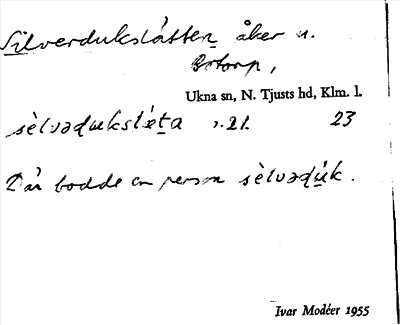 Silverdukslätten åker u.
Botorp,
Ukna sn, N. Tjusts hd, Klm. l.
sèlvədukslæ̀ta 21. 23
Där bodde en person sèlvədúk.
Ivar Modéer 1955